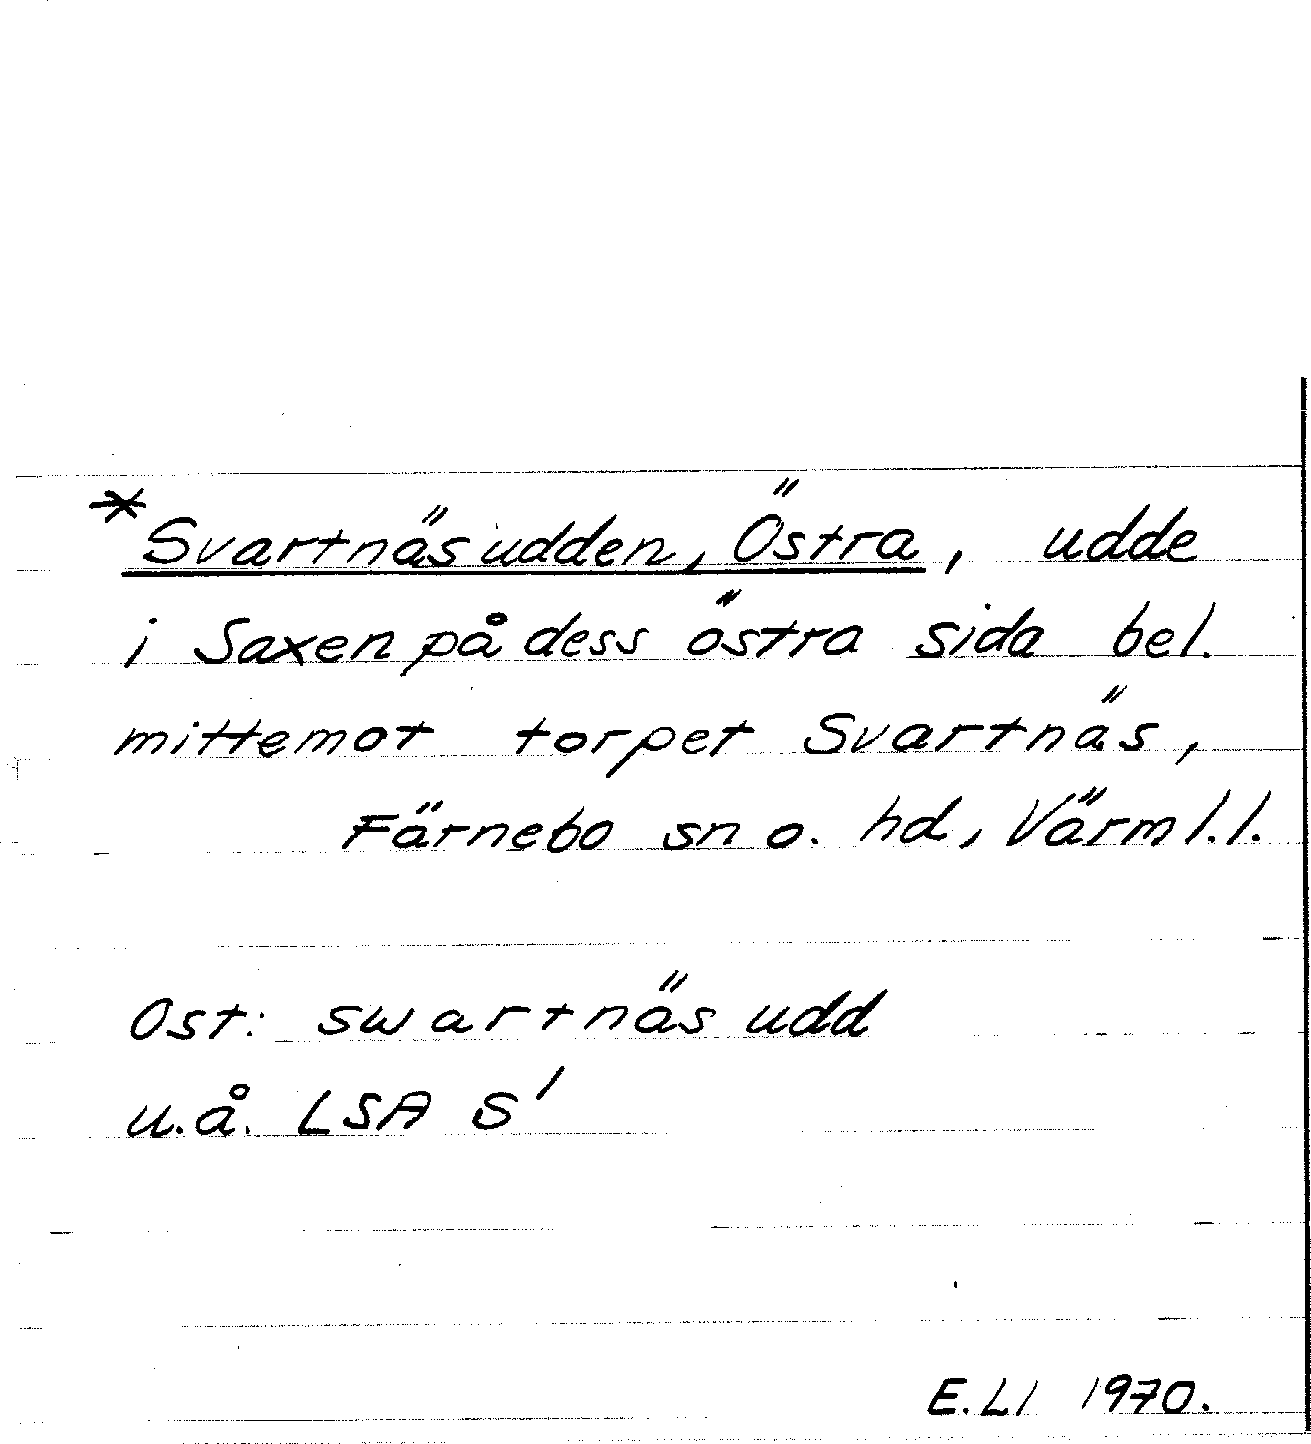 *Svartnäsudden, Östra, udde
i Saxen på dess östra sida bel.
mittemot torpet Svartnäs,
Färnebo sn o. hd, Värml.l.
Ost: swartnäs udd
u.å. LSA S'
E.Ll 1970.